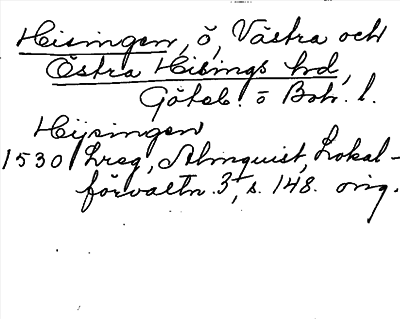 Hisingen, ö, Västra och
Östra Hisings hd,
Göteb. o Boh. l.
Hijsingen
1530 Lreg, Almquist, Lokal-
förvaltn. 3, s. 148. orig.